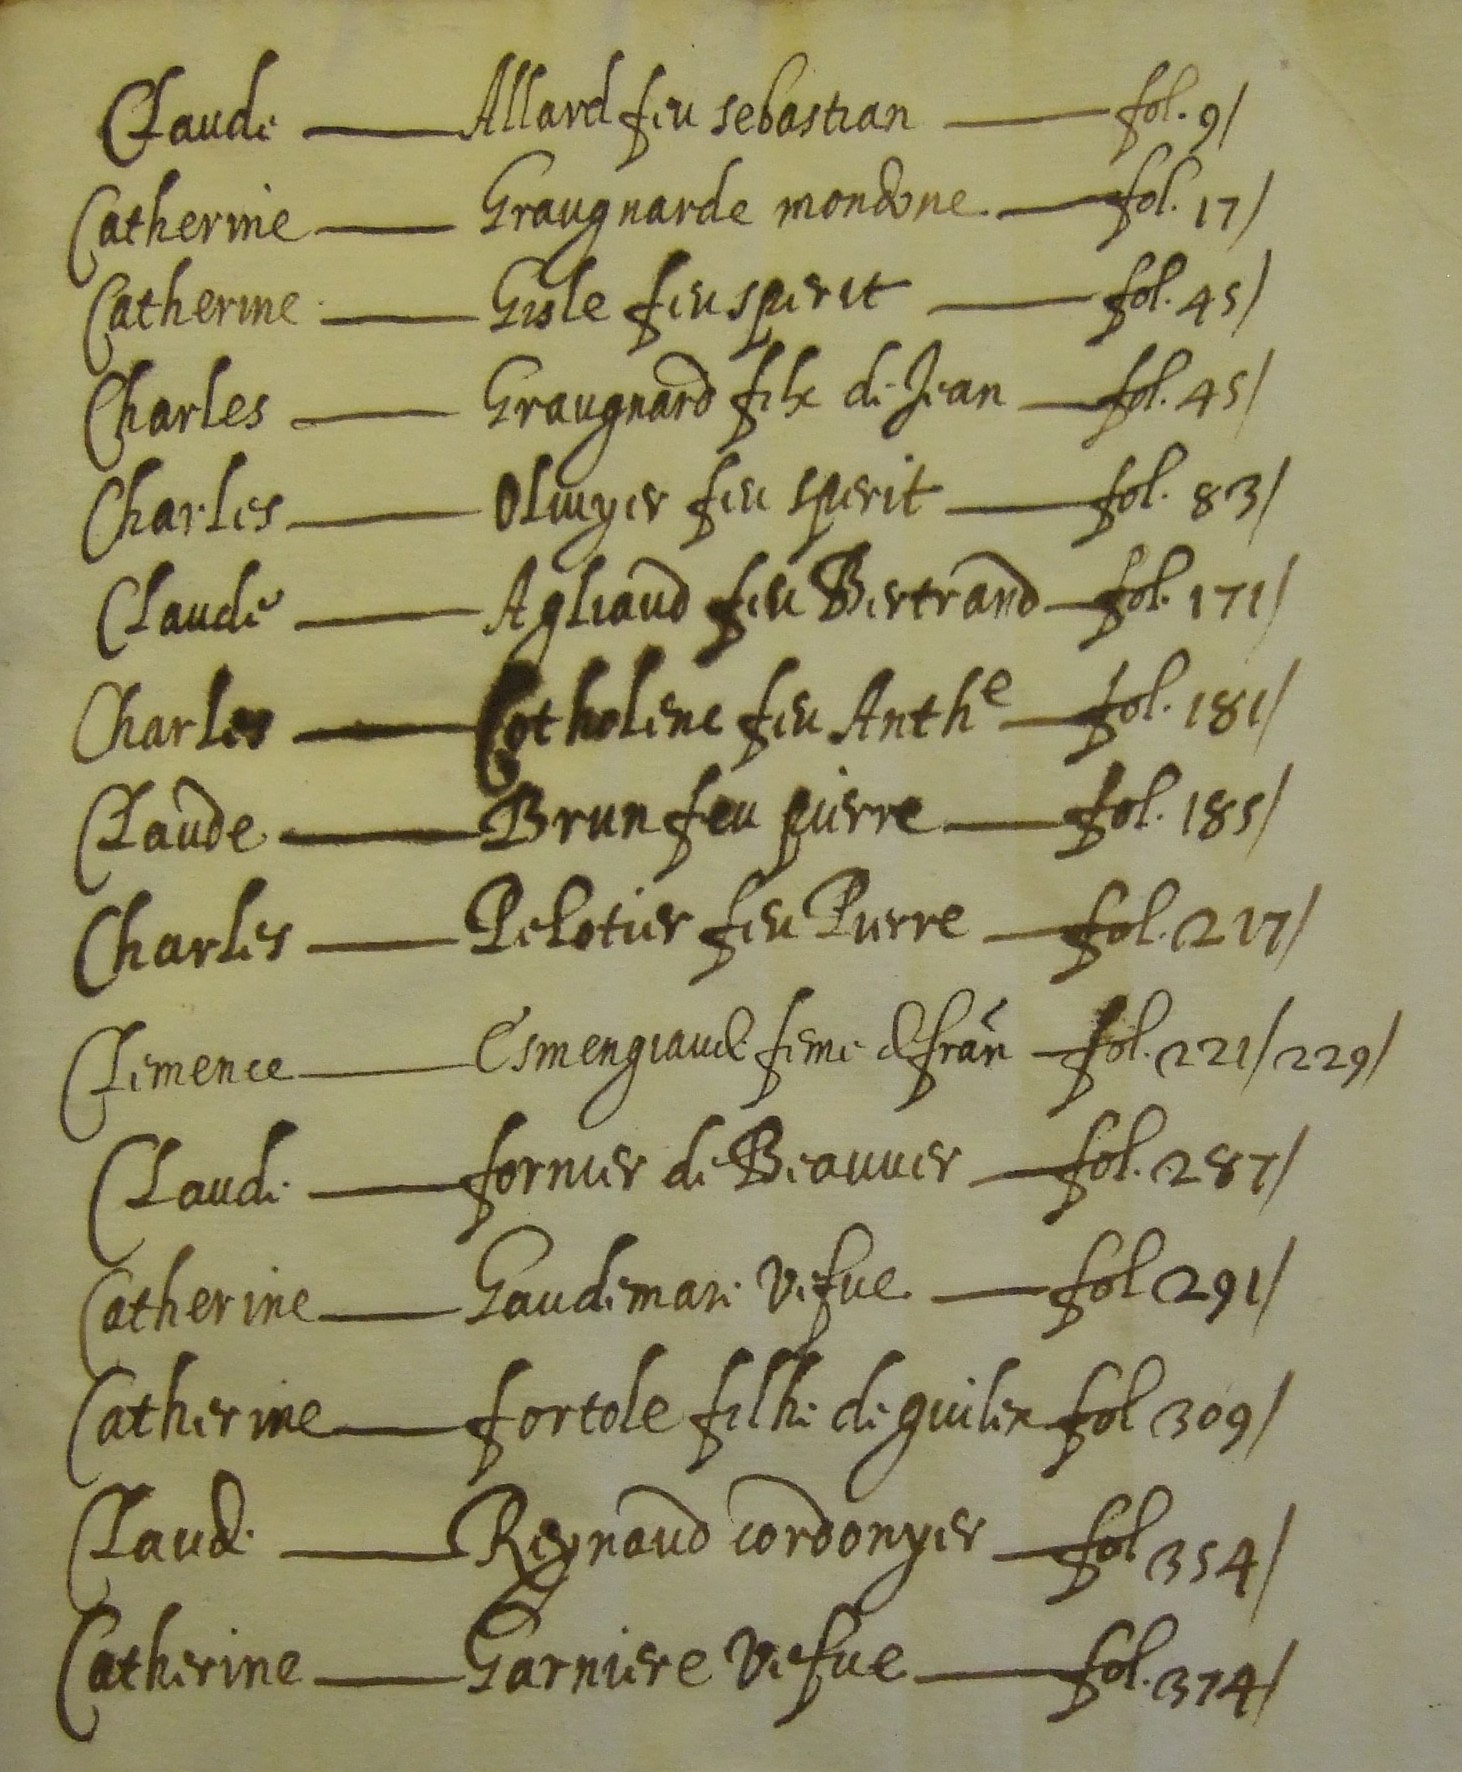 Claude — Allard feu sebastian — fol. 9/
Catherine — Graugnarde mondone — fol. 17/
Catherine — Gisle feu sperit — fol. 45/
Charles — Graugnard filx de Jean — fol. 45/
Charles — Oliuyer feu sperit — fol. 83/
Claude — Agliaud feu Bertrand — fol. 171/
Charles — Cotholenc feu Anthe — fol. 181/
Claude — Brun feu pierre — fol. 185/
Charles — Pelotier feu Pierre — fol. 217/
Clemence — Esmengiaude feme de fran — fol. 221/ 229/
Claude — fornier de Beauuer — fol. 287/
Catherine — Gaudemare vefue — fol 291/
Catherine — fortole filhe de guilex fol 309/
Claude — Reynaud cordonyer — fol 354/
Catherine — Garniere vefue — fol. 374/